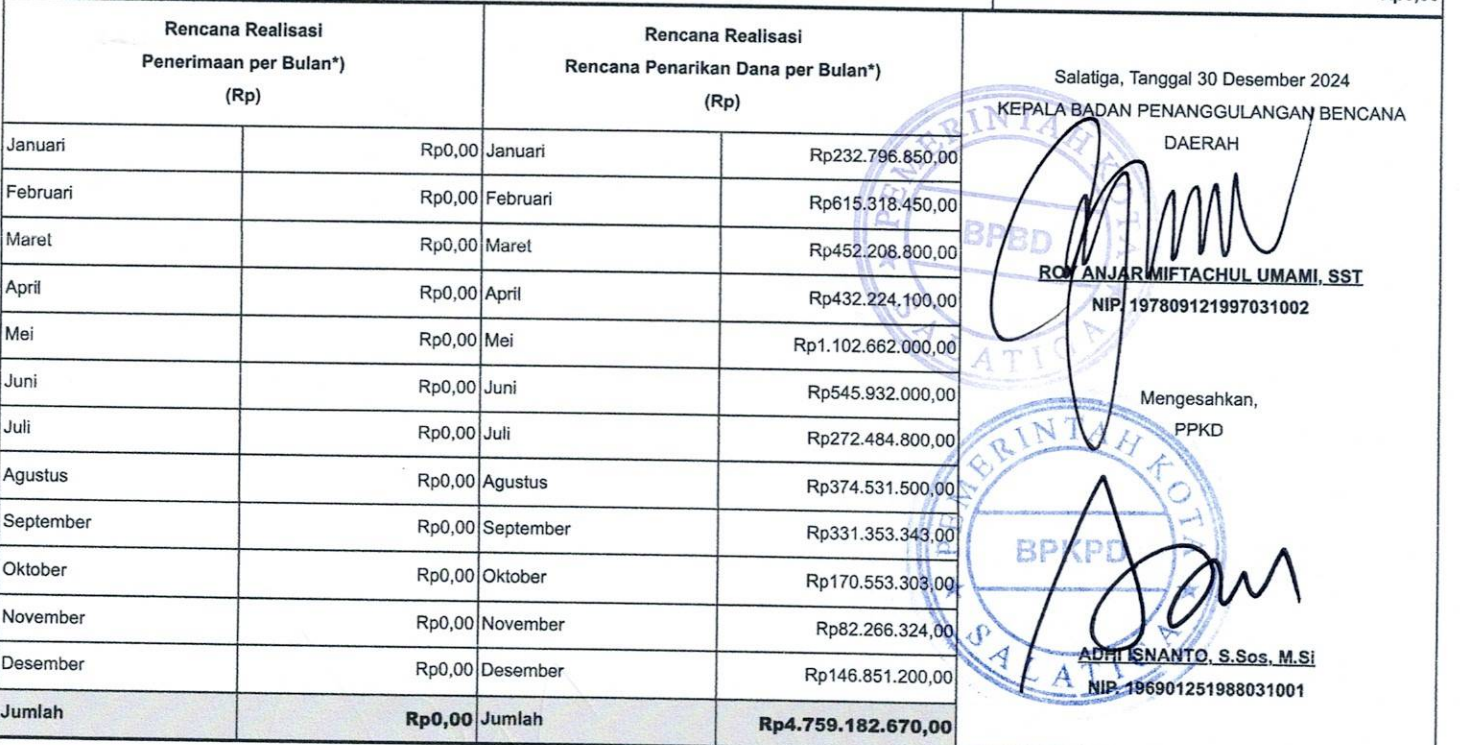 Rencana Realisasi
Penerimaan per Bulan*)
(Rp)
Rencana Realisasi
Rencana Penarikan Dana per Bulan*)
(Rp)
Januari Rp0,00 Januari Rp232.796.850,00
Februari Rp0,00 Februari Rp615.318.450,00
Maret Rp0,00 Maret Rp452.208.800,00
April Rp0,00 April Rp432.224.100,00
Mei Rp0,00 Mei Rp1.102.662.000,00
Juni Rp0,00 Juni Rp545.932.000,00
Juli Rp0,00 Juli Rp272.484.800,00
Agustus Rp0,00 Agustus Rp374.531.500,00
September Rp0,00 September Rp331.353.343,00
Oktober Rp0,00 Oktober Rp170.553.303,00
November Rp0,00 November Rp82.266.324,00
Desember Rp0,00 Desember Rp146.851.200,00
Jumlah Rp0,00 Jumlah Rp4.759.182.670,00
Salatiga, Tanggal 30 Desember 2024
KEPALA BADAN PENANGGULANGAN BENCANA
DAERAH
PEMERINTAH KOTA
BPBD
SALATIGA
ROY ANJAR MIFTACHUL UMAMI, SST
NIP. 197809121997031002
Mengesahkan,
PPKD
PEMERINTAH KOTA
BPKPD
SALATIGA
ADHI ISNANTO, S.Sos, M.Si
NIP. 196901251988031001